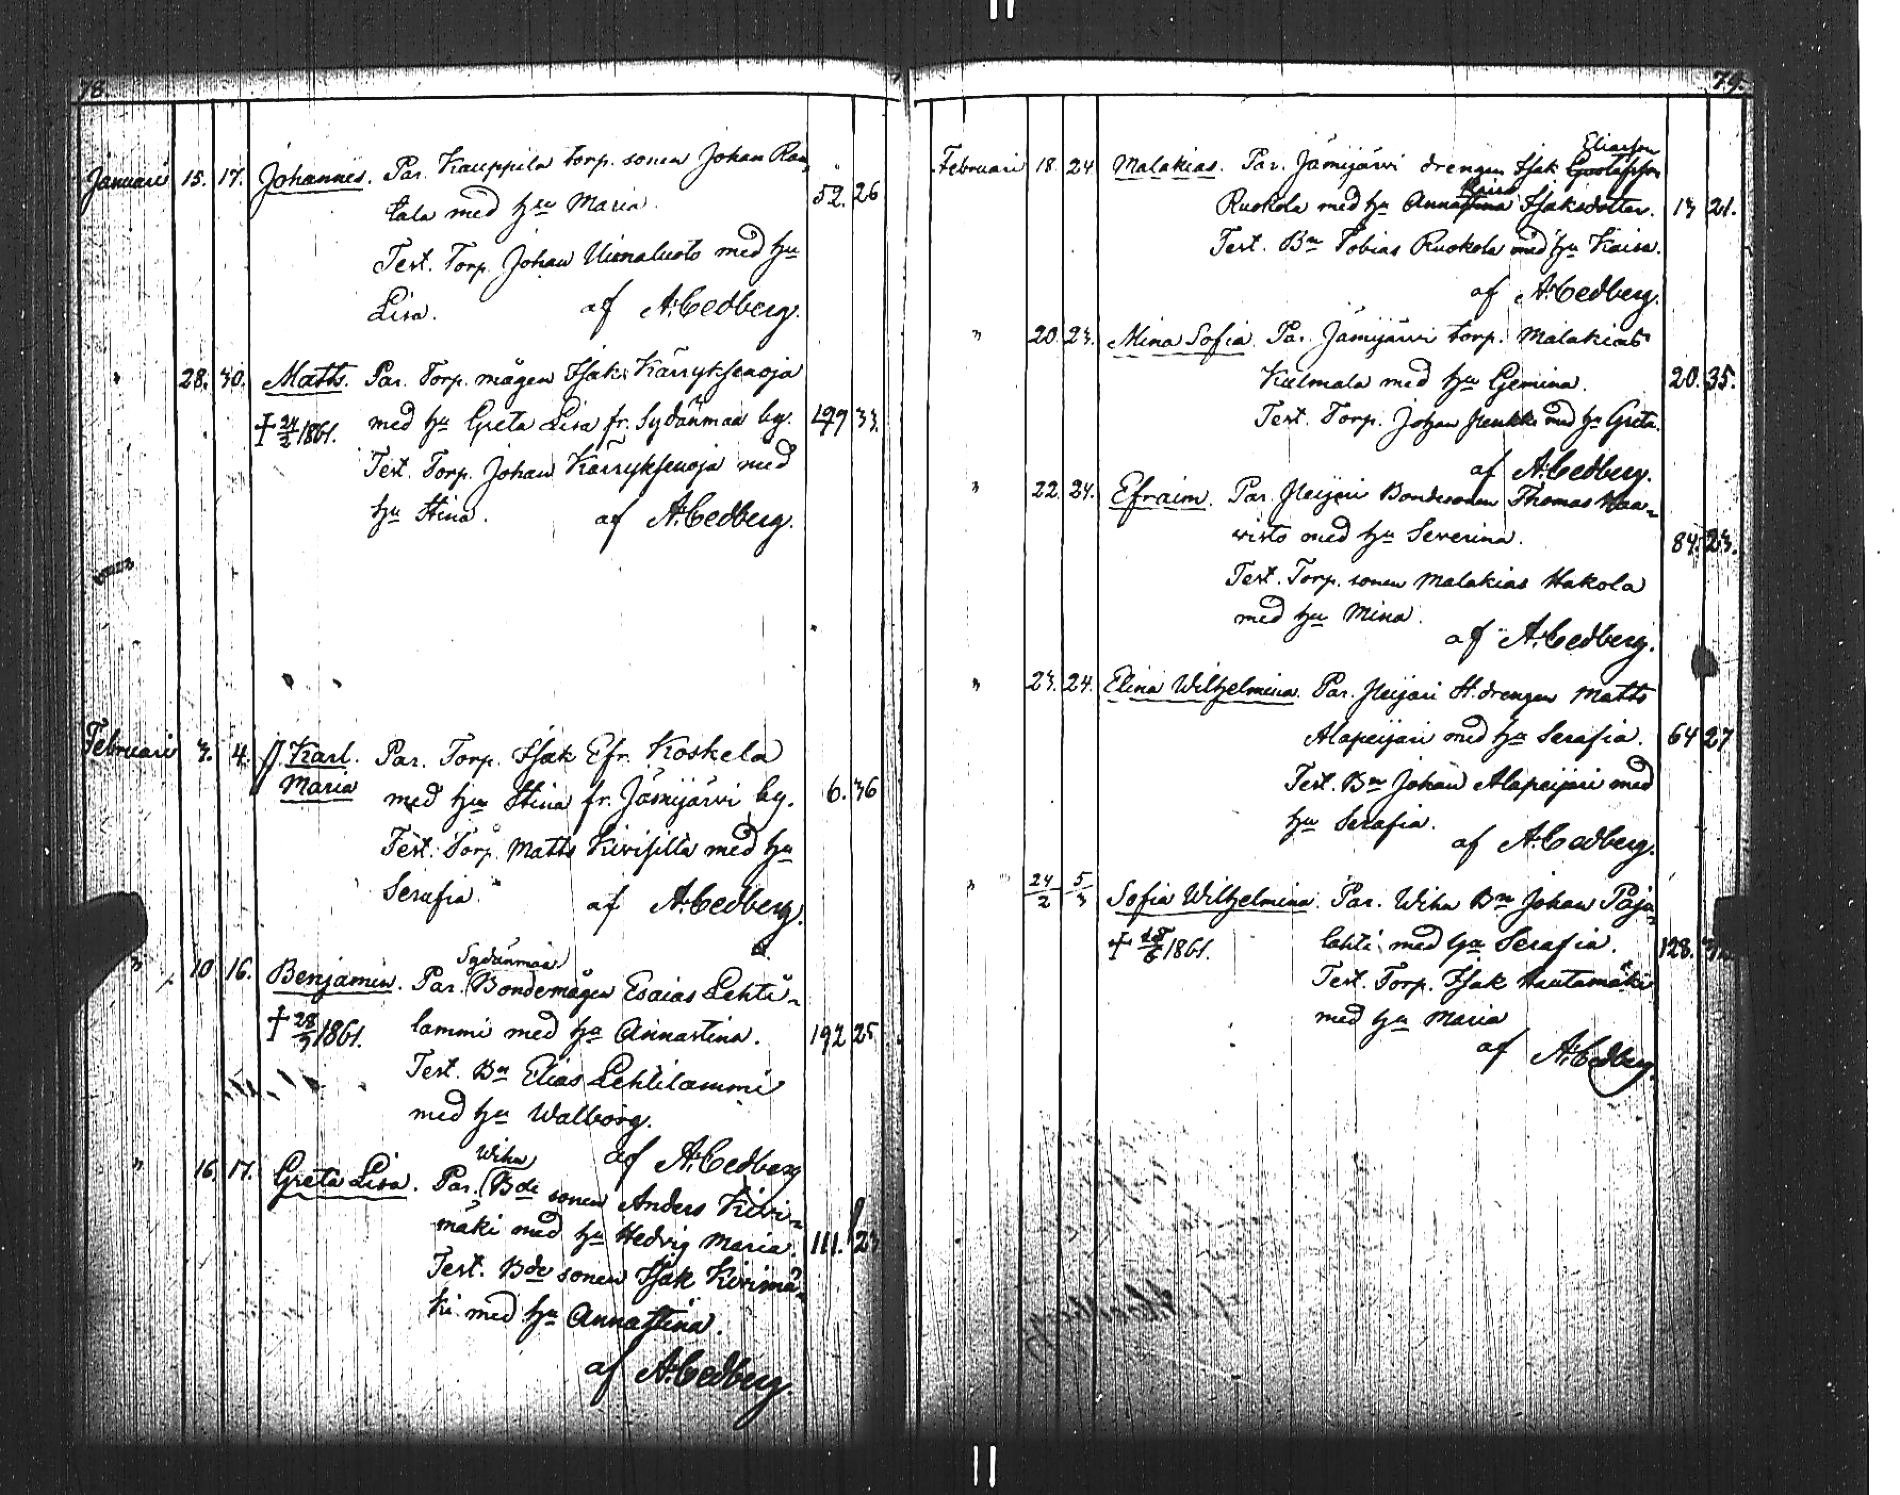 78.
Januari 15. 17. Johannes. Par. Kauppila torp. sonen Johan Ran-
tala med hu Maria. 52. 26
Test. Torp. Johan Uimaluoto med hu
Lisa. af A. Cedberg.
" 28. 30. Matts. Par. Torp. mågen Isak Kärryksenoja
† 24/2 1861. med hu Greta Lisa fr. Sydänmaa by. 33.
Test. Torp. Johan Kärryksenoja med
hu Stina. af A. Cedberg.
Februari 3. 4. Karl. Par. Torp. Isak Efr. Koskela
Maria med hu Stina fr. Jämijärvi by. 6. 36
Test. Torp. Matts Kivisilta med hu
Serafia. af A. Cedberg.
Sydänmaa
" 10 16. Benjamin. Par. Bondemågen Esaias Lehti-
† 28/3 1861. lammi med hu Annastina. 192 25
Test. Bn Elias Lehtilammi
med hu Walborg.
af A. Cedberg
Wihu
" 16. 17. Greta Lisa. Par. Bde sonen Anders Kivi-
mäki med hu Hedvig Maria. 111. 23
Test. Bde sonen Isak Kivimä-
ki med hu Annastina.
af A. Cedberg.
79.
Eliasson
Februari 18. 24. Malakias. Par. Jämijärvi drengen Isak Gustafsson
Kaisa
Ruokola med hu Annastina Isaksdotter. 13 21.
Test. Bn Tobias Ruokola med hu Kaisa.
af A. Cedberg.
" 20. 23. Mina Sofia. Par. Jämijärvi torp. Malakias
Kulmala med hu Gemina. 20. 35.
Test. Torp. Johan med hu Greta.
af A. Cedberg.
" 22. 24. Efraim. Par. Peijari Bondesonen Thomas Haa-
visto med hu Severina. 84. 23.
Test. Torp. sonen Malakias Hakola
med hu Mina.
af A. Cedberg.
" 23. 24. Elina Wilhelmina. Par. Peijari H. drengen Matts
Alapeijari med hu Serafia. 64 27
Test. Bn Johan Alapeijari med
hu Serafia.
af A. Cedberg.
" 24/2 5/3 Sofia Wilhelmina. Par. Wihu Bn Johan Paju-
† 18/6 1861. lahti med hu Serafia. 128.
Test. Torp. Isak Hautamäki
med hu Maria
af A. Cedberg.